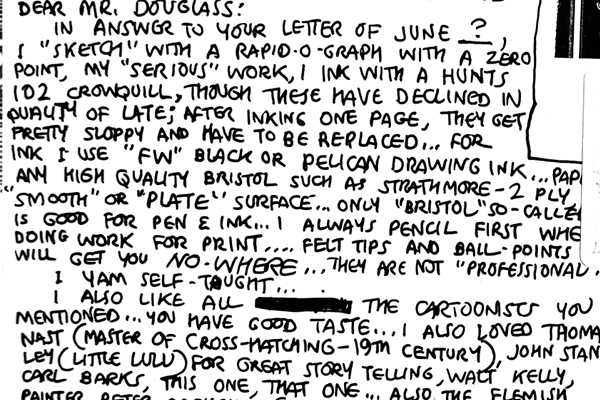 DEAR MR. DOUGLASS:
IN ANSWER TO YOUR LETTER OF JUNE ?,
I "SKETCH" WITH A RAPID-O-GRAPH WITH A ZERO
POINT, MY "SERIOUS" WORK, I INK WITH A HUNTS
102 CROWQUILL, THOUGH THESE HAVE DECLINED IN
QUALITY OF LATE; AFTER INKING ONE PAGE, THEY GET
PRETTY SLOPPY AND HAVE TO BE REPLACED... FOR
INK I USE "FW" BLACK OR PELICAN DRAWING INK... PAP
ANY HIGH QUALITY BRISTOL SUCH AS STRATHMORE-2 PLY
"SMOOTH" OR "PLATE" SURFACE... ONLY "BRISTOL" SO-CALLE
IS GOOD FOR PEN & INK... I ALWAYS PENCIL FIRST WHE
DOING WORK FOR PRINT.... FELT TIPS AND BALL-POINTS
WILL GET YOU NO-WHERE... THEY ARE NOT "PROFESSIONAL.
I YAM SELF-TAUGHT...
I ALSO LIKE ALL THE CARTOONISTS YOU
MENTIONED... YOU HAVE GOOD TASTE... I ALSO LOVED THOMA
NAST (MASTER OF CROSS-HATCHING-19TH CENTURY), JOHN STAN
LEY (LITTLE LULU) FOR GREAT STORY TELLING, WALT KELLY,
CARL BARKS, THIS ONE, THAT ONE... ALSO THE FLEMISH
PAINTER PETER